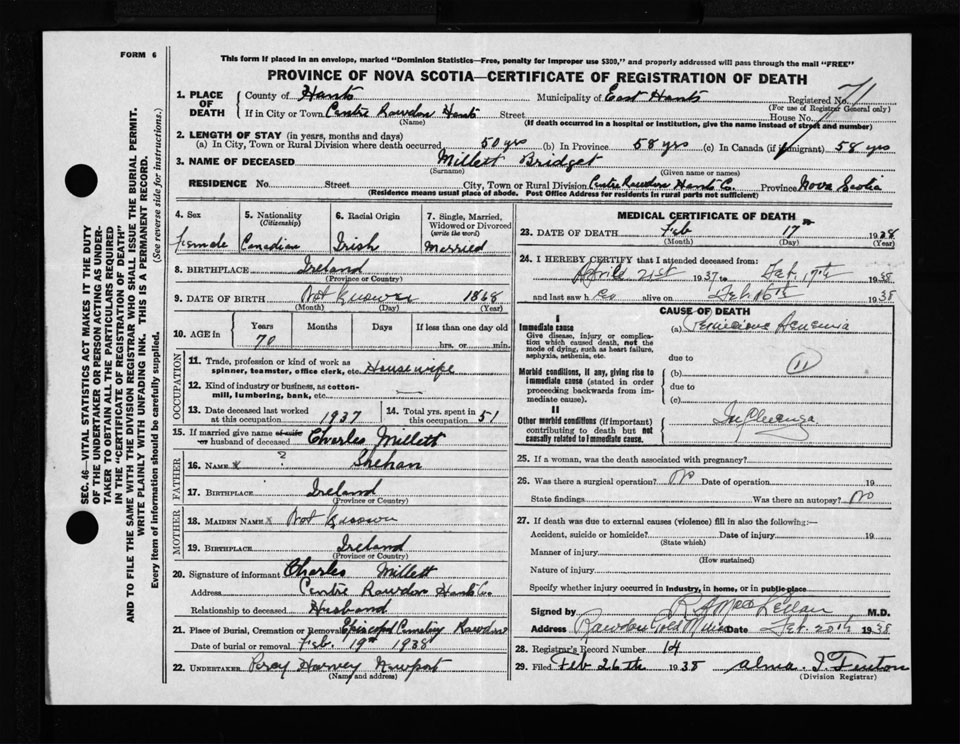 FORM 6
This form if placed in an envelope, marked "Dominion Statistics—Free, penalty for improper use $300," and properly addressed will pass through the mail "FREE"
PROVINCE OF NOVA SCOTIA—CERTIFICATE OF REGISTRATION OF DEATH
SEC. 46—VITAL STATISTICS ACT MAKES IT THE DUTY
OF THE UNDERTAKER OR PERSON ACTING AS UNDER-
TAKER TO OBTAIN ALL THE PARTICULARS REQUIRED
IN THE "CERTIFICATE OF REGISTRATION OF DEATH"
AND TO FILE THE SAME WITH THE DIVISION REGISTRAR WHO SHALL ISSUE THE BURIAL PERMIT.
WRITE PLAINLY WITH UNFADING INK. THIS IS A PERMANENT RECORD.
Every item of information should be carefully supplied. (See reverse side for instructions.)
1. PLACE OF DEATH County of Hants Municipality of East Hants Registered No. 71
(For use of Registrar General only)
If in City or Town Centre Rawdon Hants Street House No.
(Name) (If death occurred in a hospital or institution, give the name instead of street and number)
2. LENGTH OF STAY (in years, months and days)
(a) In City, Town or Rural Division where death occurred 50 yrs (b) In Province 58 yrs (c) In Canada (if immigrant) 58 yrs
3. NAME OF DECEASED Millett Bridget
(Surname) (Given name or names)
RESIDENCE No. Street City, Town or Rural Division Centre Rawdon Hants Co. Province Nova Scotia
(Residence means usual place of abode. Post Office Address for residents in rural parts not sufficient)
4. Sex 5. Nationality (Citizenship) 6. Racial Origin 7. Single, Married, Widowed or Divorced (write the word)
Female Canadian Irish Married
8. BIRTHPLACE Ireland
(Province or Country)
9. DATE OF BIRTH Not Known 1868
(Month) (Day) (Year)
10. AGE in Years Months Days If less than one day old
70 hrs. or min.
OCCUPATION
11. Trade, profession or kind of work as spinner, teamster, office clerk, etc. Housewife
12. Kind of industry or business, as cotton-mill, lumbering, bank, etc.
13. Date deceased last worked at this occupation 1937 14. Total yrs. spent in 51
15. If married give name of wife or husband of deceased Charles Millett
FATHER
16. NAME ? Shehan
17. BIRTHPLACE Ireland
(Province or Country)
MOTHER
18. MAIDEN NAME Not Known
19. BIRTHPLACE Ireland
(Province or Country)
20. Signature of informant Charles Millett
Address Centre Rawdon Hants Co.
Relationship to deceased Husband
21. Place of Burial, Cremation or Removal Episcopal Cemetery Rawdon
Date of burial or removal Feb. 19th 1938
22. UNDERTAKER Percy Harvey Newport
(Name and Address)
MEDICAL CERTIFICATE OF DEATH
23. DATE OF DEATH Feb 17th 1938
(Month) (Day) (Year)
24. I HEREBY CERTIFY that I attended deceased from:
April 21st 1937 to Feb. 17th 1938
and last saw her alive on Feb. 16th 1938
CAUSE OF DEATH
I
Immediate cause (a) Pernicious Anaemia
Give disease, injury or complication which caused death, not the mode of dying, such as heart failure, asphyxia, asthenia, etc.
due to
Morbid conditions, if any, giving rise to immediate cause (stated in order proceeding backwards from immediate cause). (b) 11
due to
(c)
II
Other morbid conditions (if important) contributing to death but not causally related to immediate cause. Influenza
25. If a woman, was the death associated with pregnancy?
26. Was there a surgical operation? No Date of operation 19
State findings Was there an autopsy? No
27. If death was due to external causes (violence) fill in also the following:—
Accident, suicide or homicide? Date of injury 19
(State which)
Manner of injury
(How sustained)
Nature of injury
Specify whether injury occurred in industry, in home, or in public place
Signed by M.D.
Address Rawdon Gold Mines Date Feb. 20th 1938
28. Registrar's Record Number 14
29. Filed Feb 26th 1938 Alma I. Fenton
(Division Registrar)